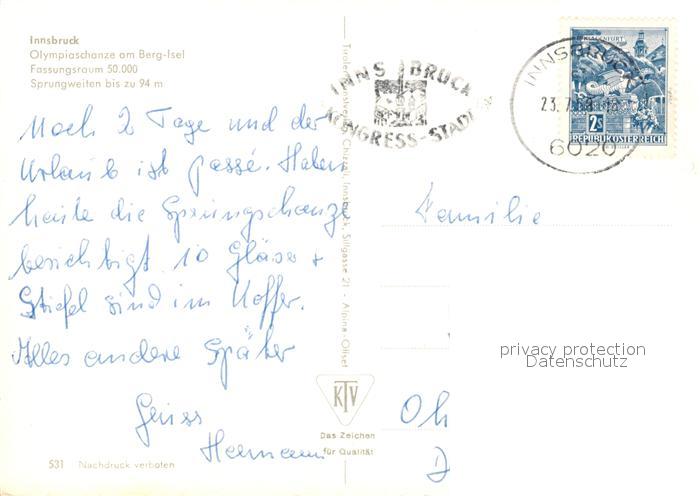 Innsbruck
Olympiaschanze am Berg-Isel
Fassungsraum 50.000
Sprungweiten bis zu 94 m
Noch 2 Tage und der
Urlaub ist passé. Haben
heute die Sprungschanze
besichtigt 10 Gläser +
Stiefel sind im Koffer.
Alles andere Später
Gruss
Hermann
531 Nachdruck verboten
Chizzali, Innsbruck, Sillgasse 21 - Alpina-Offset
KTV
Das Zeichen
für Qualität
INNSBRUCK
KONGRESS-STADT
INNSBRUCK
23.7.68
6020
KLAGENFURT
2S
REPUBLIK ÖSTERREICH
Familie
privacy protection
Datenschutz
Oh
D